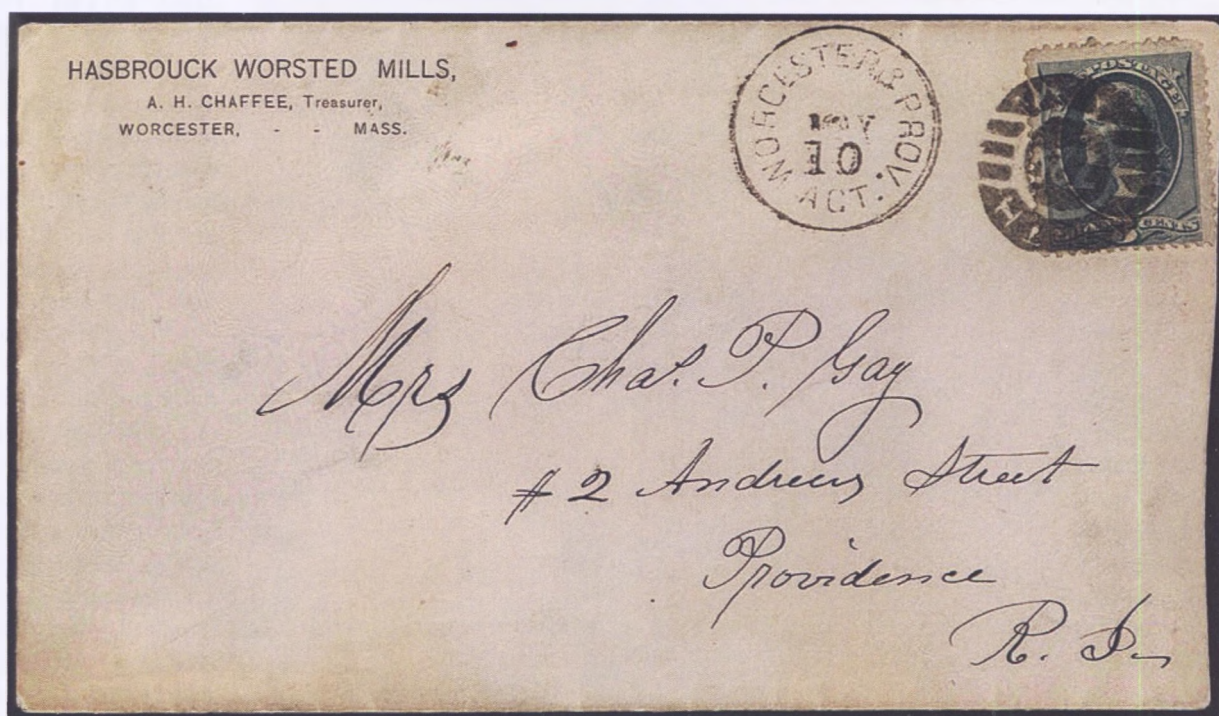 HASBROUCK WORSTED MILLS,
A. H. CHAFFEE, Treasurer,
WORCESTER, - - MASS.
WORCESTER & PROV.
MAY
10.
AGT.
POSTAGE
CENTS
Mrs Chas. P. Gay
# 2 Andrews Street
Providence
R. I.